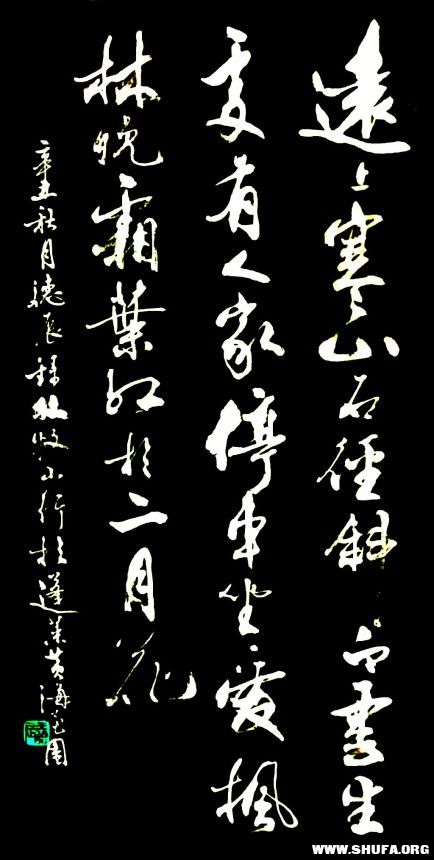 遠上寒山石徑斜白雲生
處有人家停車坐愛楓
林晚霜葉紅於二月花
辛丑秋月錄杜牧山行於蓬萊黃海園
WWW.SHUFA.ORG